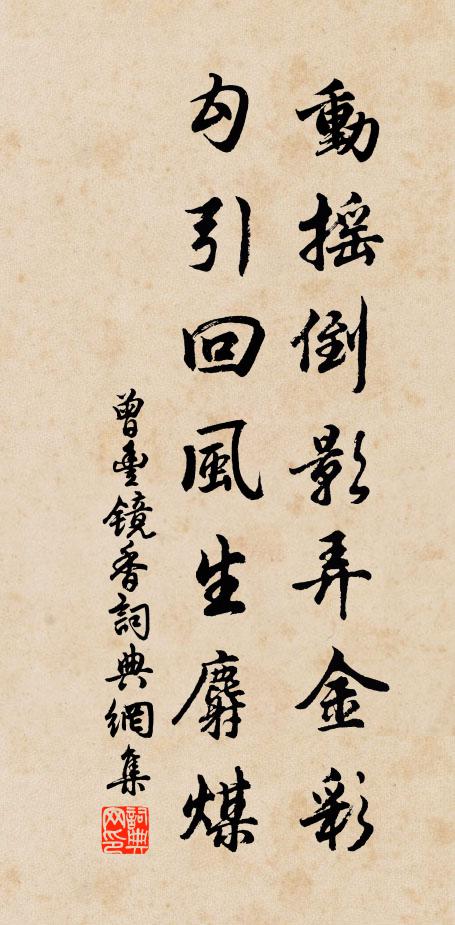 動摇倒影弄金彩
勾引回風生麝煤
曾豐鏡香詞典網集
詞典网印